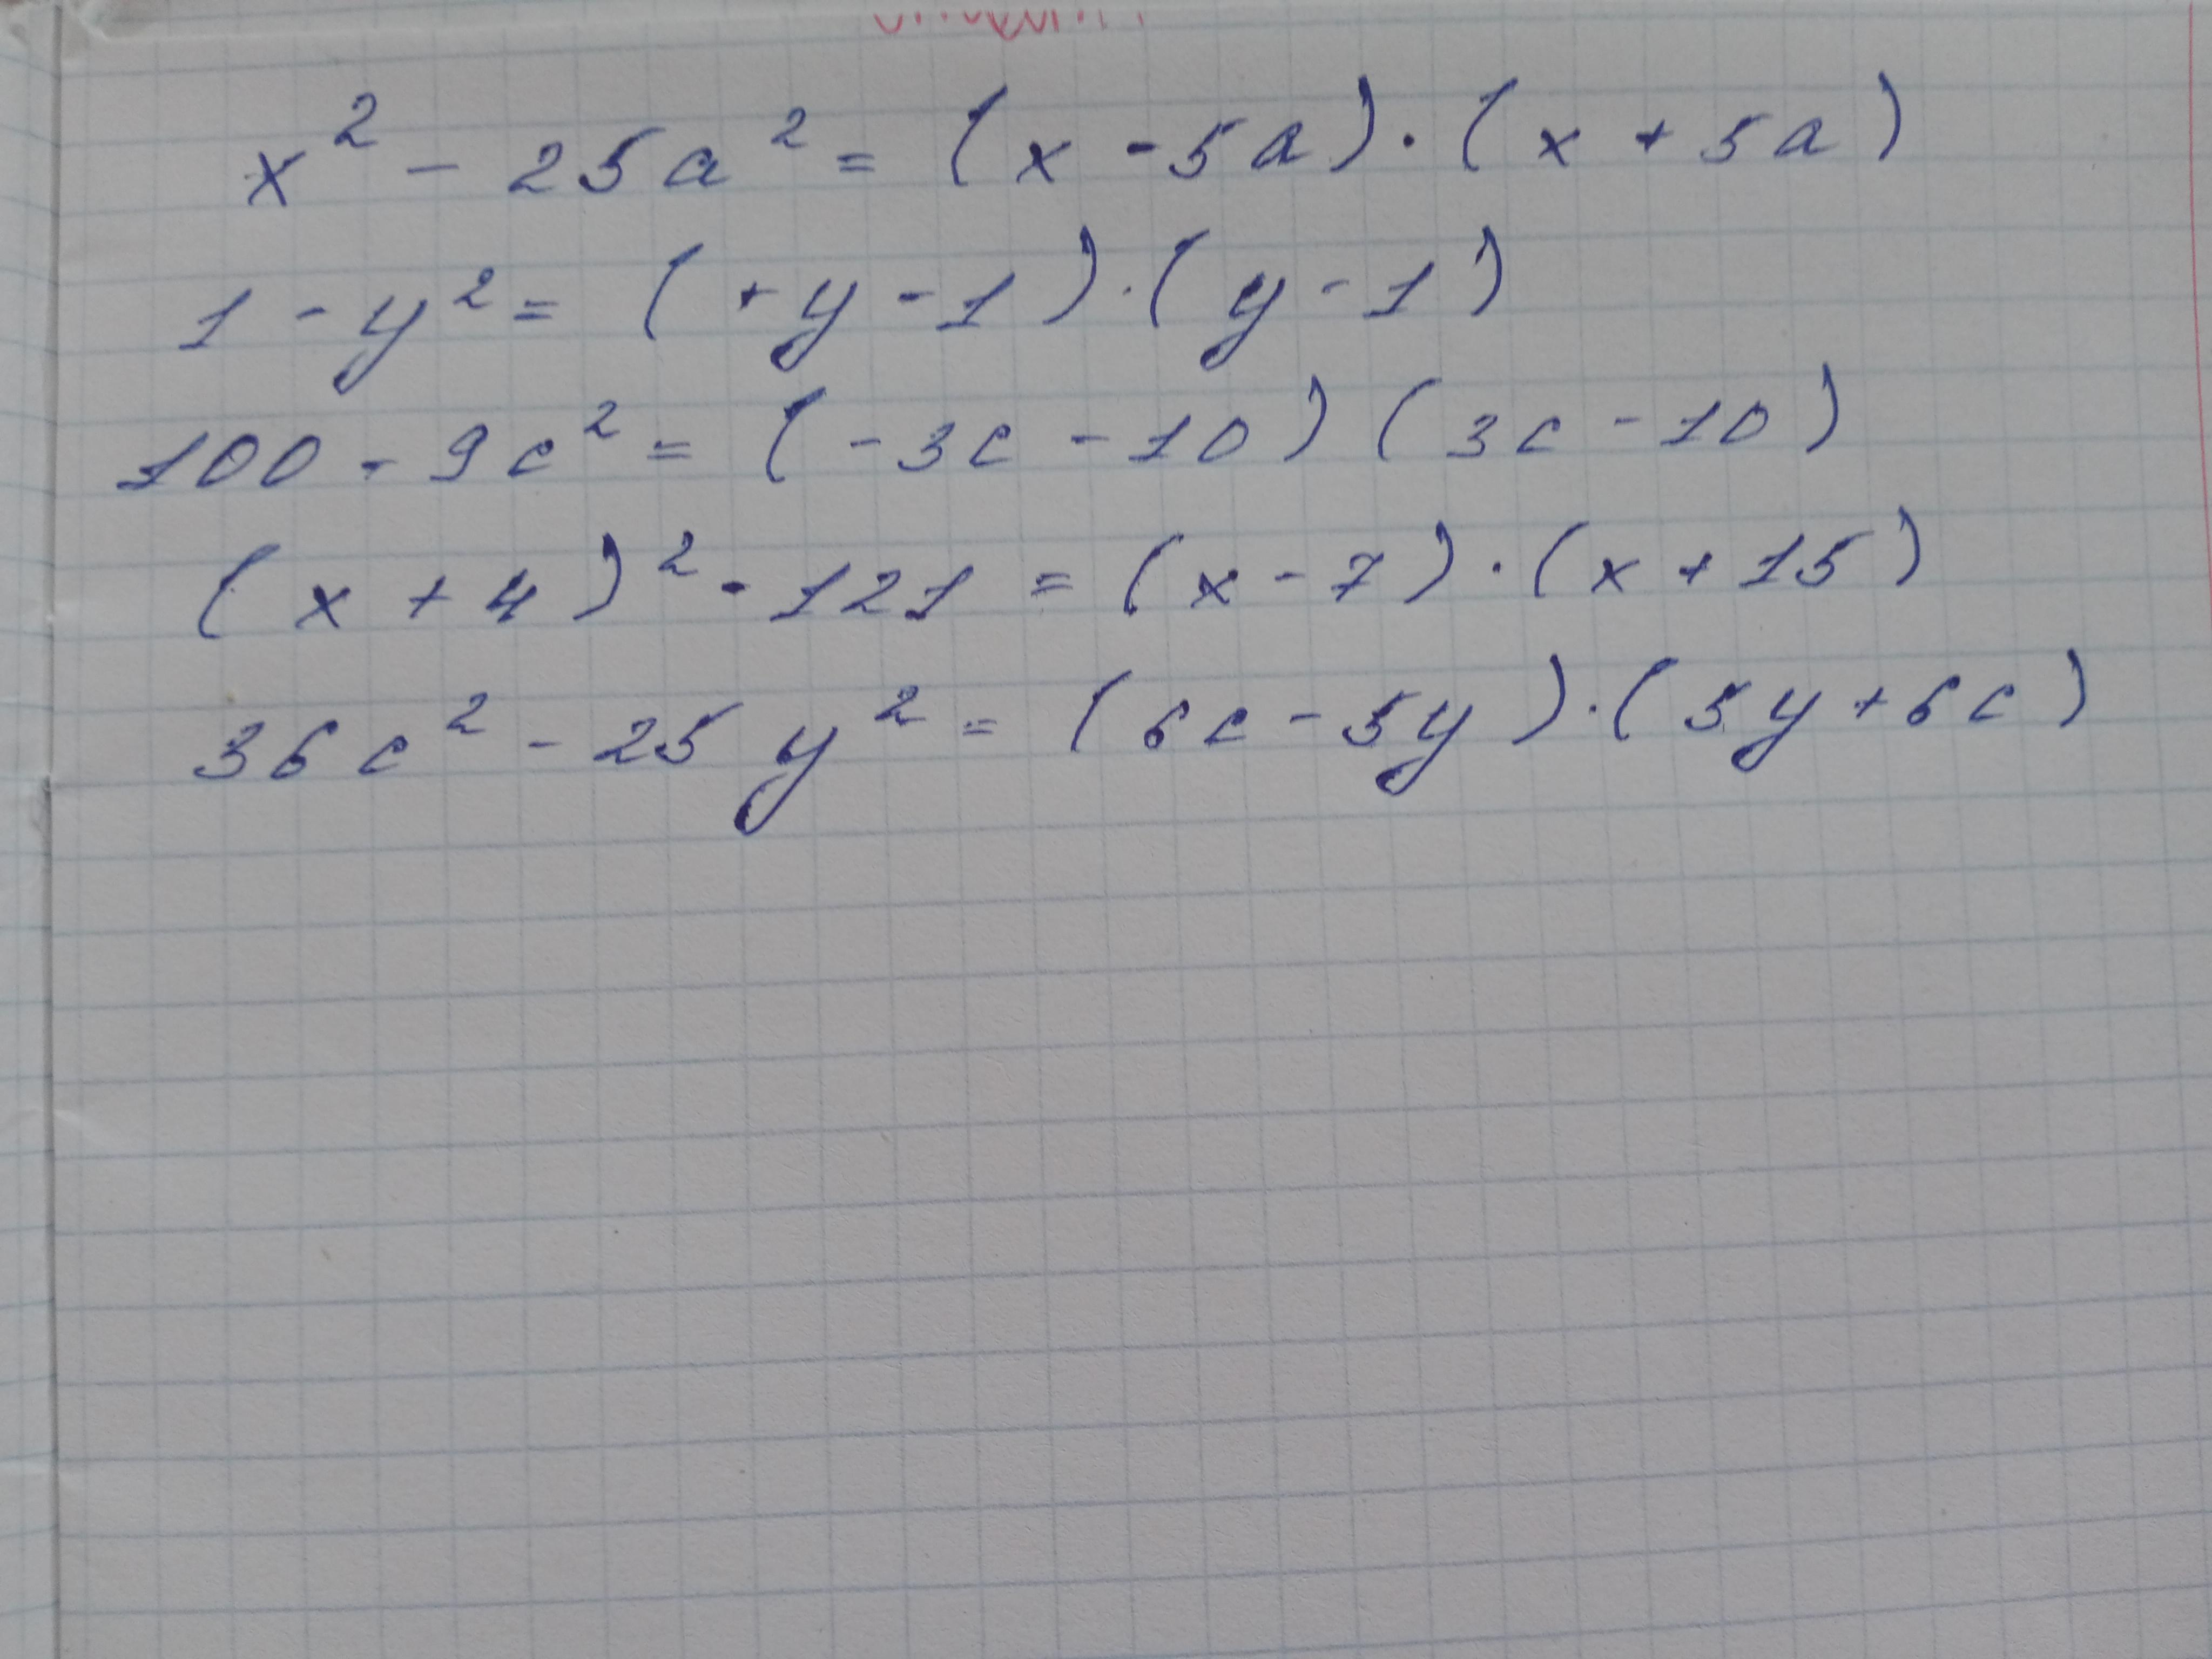 x² - 25a² = (x - 5a) · (x + 5a)
1 - y² = (+y - 1) · (y - 1)
100 - 9c² = (-3c - 10) (3c - 10)
(x + 4)² - 121 = (x - 7) · (x + 15)
36c² - 25y² = (6c - 5y) · (5y + 6c)